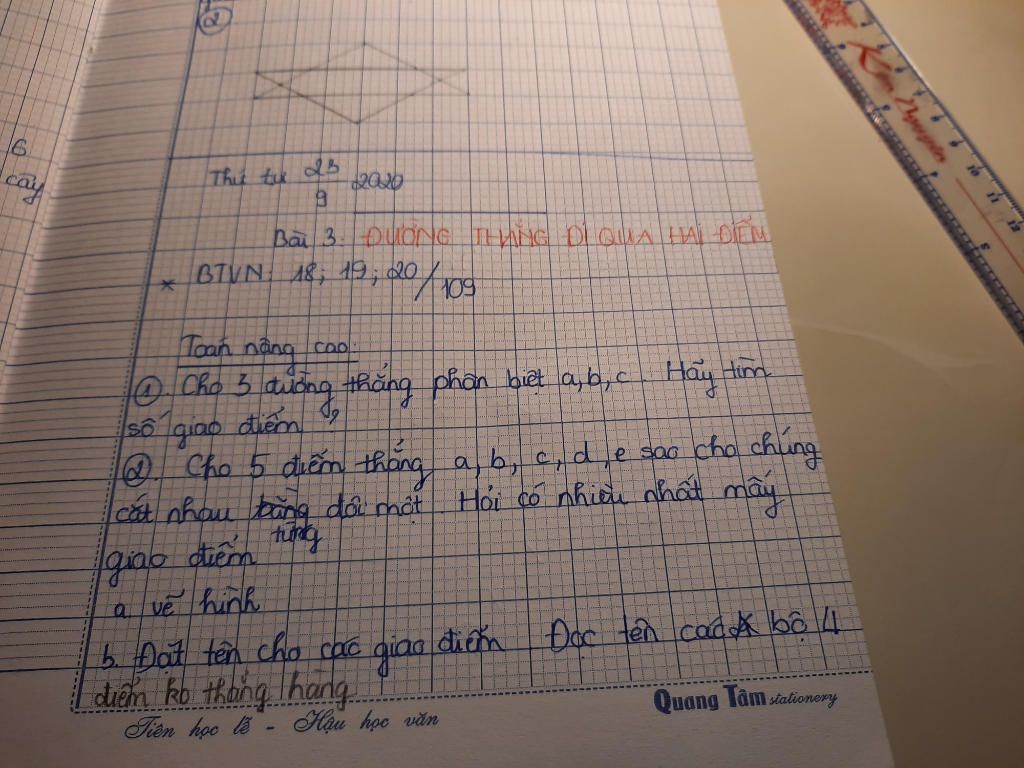 ②
6
cây
Thứ tư 23/9 2020
Bài 3. ĐƯỜNG THẲNG ĐI QUA HAI ĐIỂM
* BTVN: 18; 19; 20/109
Toán nâng cao:
① Cho 3 đường thẳng phân biệt a, b, c Hãy tìm
số giao điểm
②. Cho 5 điểm thẳng a, b, c, d, e sao cho chúng
cắt nhau từng đôi một Hỏi có nhiều nhất mấy
giao điểm
a vẽ hình
b. Đặt tên cho các giao điểm Đọc tên các bộ 4
điểm ko thẳng hàng
Tiên học lễ - Hậu học văn
Quang Tâm stationery
Kim Nguyên
8 9 10 11 12